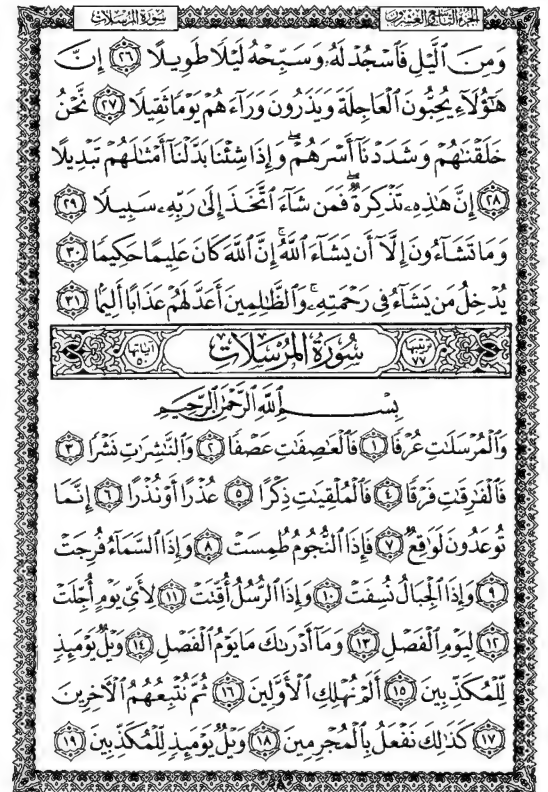 الجزء التاسع والعشرون سورة المرسلات
وَمِنَ ٱلَّيْلِ فَٱسْجُدْ لَهُۥ وَسَبِّحْهُ لَيْلًا طَوِيلًا ﴿٢٦﴾ إِنَّ
هَٰٓؤُلَآءِ يُحِبُّونَ ٱلْعَاجِلَةَ وَيَذَرُونَ وَرَآءَهُمْ يَوْمًا ثَقِيلًا ﴿٢٧﴾ نَّحْنُ
خَلَقْنَٰهُمْ وَشَدَدْنَآ أَسْرَهُمْ ۖ وَإِذَا شِئْنَا بَدَّلْنَآ أَمْثَٰلَهُمْ تَبْدِيلًا
﴿٢٨﴾ إِنَّ هَٰذِهِۦ تَذْكِرَةٌ ۖ فَمَن شَآءَ ٱتَّخَذَ إِلَىٰ رَبِّهِۦ سَبِيلًا ﴿٢٩﴾
وَمَا تَشَآءُونَ إِلَّآ أَن يَشَآءَ ٱللَّهُ ۚ إِنَّ ٱللَّهَ كَانَ عَلِيمًا حَكِيمًا ﴿٣٠﴾
يُدْخِلُ مَن يَشَآءُ فِى رَحْمَتِهِۦ ۚ وَٱلظَّٰلِمِينَ أَعَدَّ لَهُمْ عَذَابًا أَلِيمًا ﴿٣١﴾
ترتيبها ٧٧ سورة المرسلات آياتها ٥٠
بِسْمِ ٱللَّهِ ٱلرَّحْمَٰنِ ٱلرَّحِيمِ
وَٱلْمُرْسَلَٰتِ عُرْفًا ﴿١﴾ فَٱلْعَٰصِفَٰتِ عَصْفًا ﴿٢﴾ وَٱلنَّٰشِرَٰتِ نَشْرًا ﴿٣﴾
فَٱلْفَٰرِقَٰتِ فَرْقًا ﴿٤﴾ فَٱلْمُلْقِيَٰتِ ذِكْرًا ﴿٥﴾ عُذْرًا أَوْ نُذْرًا ﴿٦﴾ إِنَّمَا
تُوعَدُونَ لَوَٰقِعٌ ﴿٧﴾ فَإِذَا ٱلنُّجُومُ طُمِسَتْ ﴿٨﴾ وَإِذَا ٱلسَّمَآءُ فُرِجَتْ
﴿٩﴾ وَإِذَا ٱلْجِبَالُ نُسِفَتْ ﴿١٠﴾ وَإِذَا ٱلرُّسُلُ أُقِّتَتْ ﴿١١﴾ لِأَىِّ يَوْمٍ أُجِّلَتْ
﴿١٢﴾ لِيَوْمِ ٱلْفَصْلِ ﴿١٣﴾ وَمَآ أَدْرَىٰكَ مَا يَوْمُ ٱلْفَصْلِ ﴿١٤﴾ وَيْلٌ يَوْمَئِذٍ
لِّلْمُكَذِّبِينَ ﴿١٥﴾ أَلَمْ نُهْلِكِ ٱلْأَوَّلِينَ ﴿١٦﴾ ثُمَّ نُتْبِعُهُمُ ٱلْءَاخِرِينَ
﴿١٧﴾ كَذَٰلِكَ نَفْعَلُ بِٱلْمُجْرِمِينَ ﴿١٨﴾ وَيْلٌ يَوْمَئِذٍ لِّلْمُكَذِّبِينَ ﴿١٩﴾